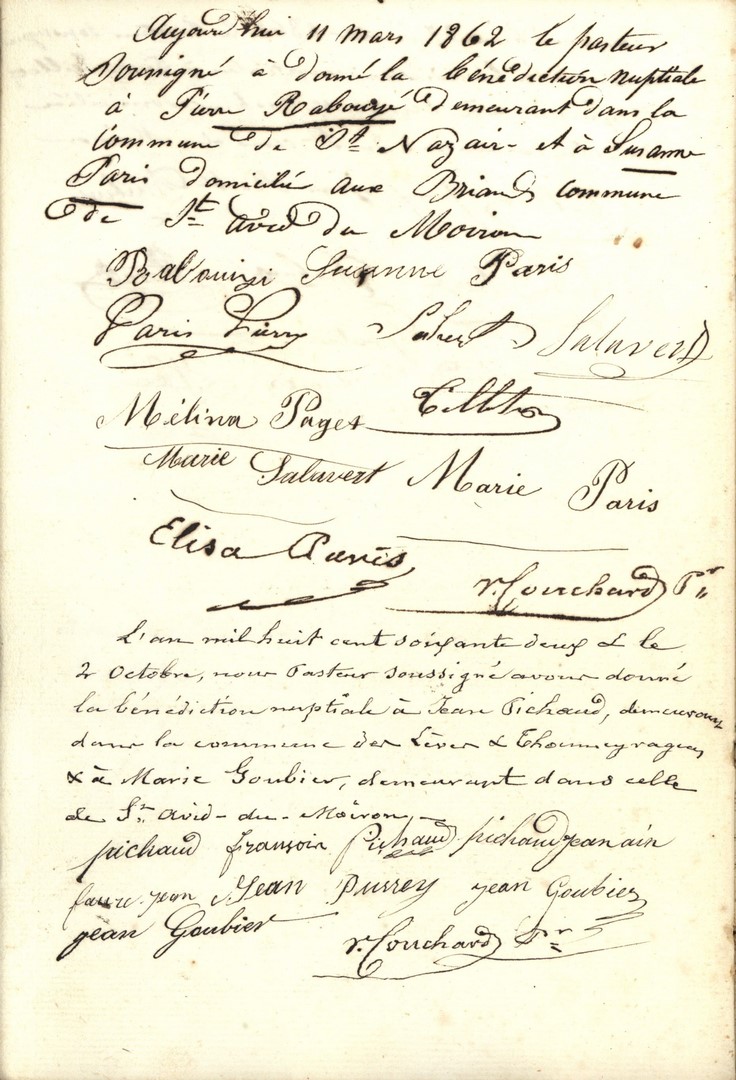 Aujourd'hui 11 mars 1862 le pasteur
Soussigné à donné la bénédiction nuptiale
à Pierre Rabouyé demeurant dans la
Commune de St Nazair- et à Susanne
Paris domicilié aux Briands commune
de St Avid du Moiron
Susanne Paris
Paris Pierre Salavert
Mélina Pages
Marie Salavert Marie Paris
Elisa Paris
r. Couchard Pr
L'an mil huit cent soixante deux & le
2 Octobre, nous Pasteur soussigné avons donné
la bénédiction nuptiale à Jean Pichaud, demeurant
dans la commune des Lèves & Thoumeyragues
& à Marie Goubier, demeurant dans celle
de St Avid-du-Moiron,-
pichaud françois Pichaud pichaud jean ain
faure jean Jean Jean Goubier
jean Goubier r. Couchard Pr